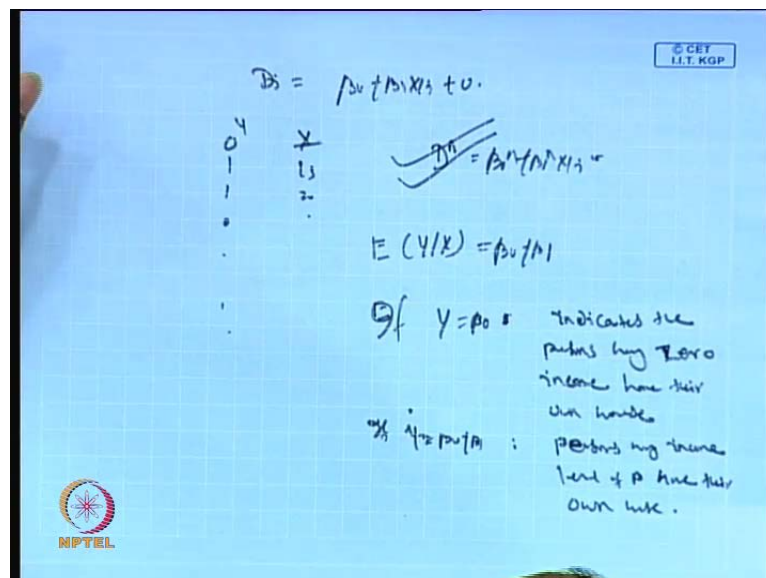 © CET
I.I.T. KGP
Di = β0 + β1 X1i + U.
Y X
0
1 15
1 20
= β0^ + β1^ X1i
E (Y/X) = β0 + β1
If Y = β0 : indicates the
persons hvg zero
income have their
own house
Y = β0 + β1 : persons hvg income
level of have their
own house.
NPTEL